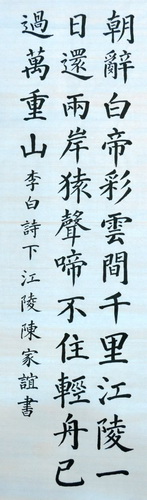 朝辭白帝彩雲間千里江陵一
日還兩岸猿聲啼不住輕舟已
過萬重山李白詩下江陵陳家誼書